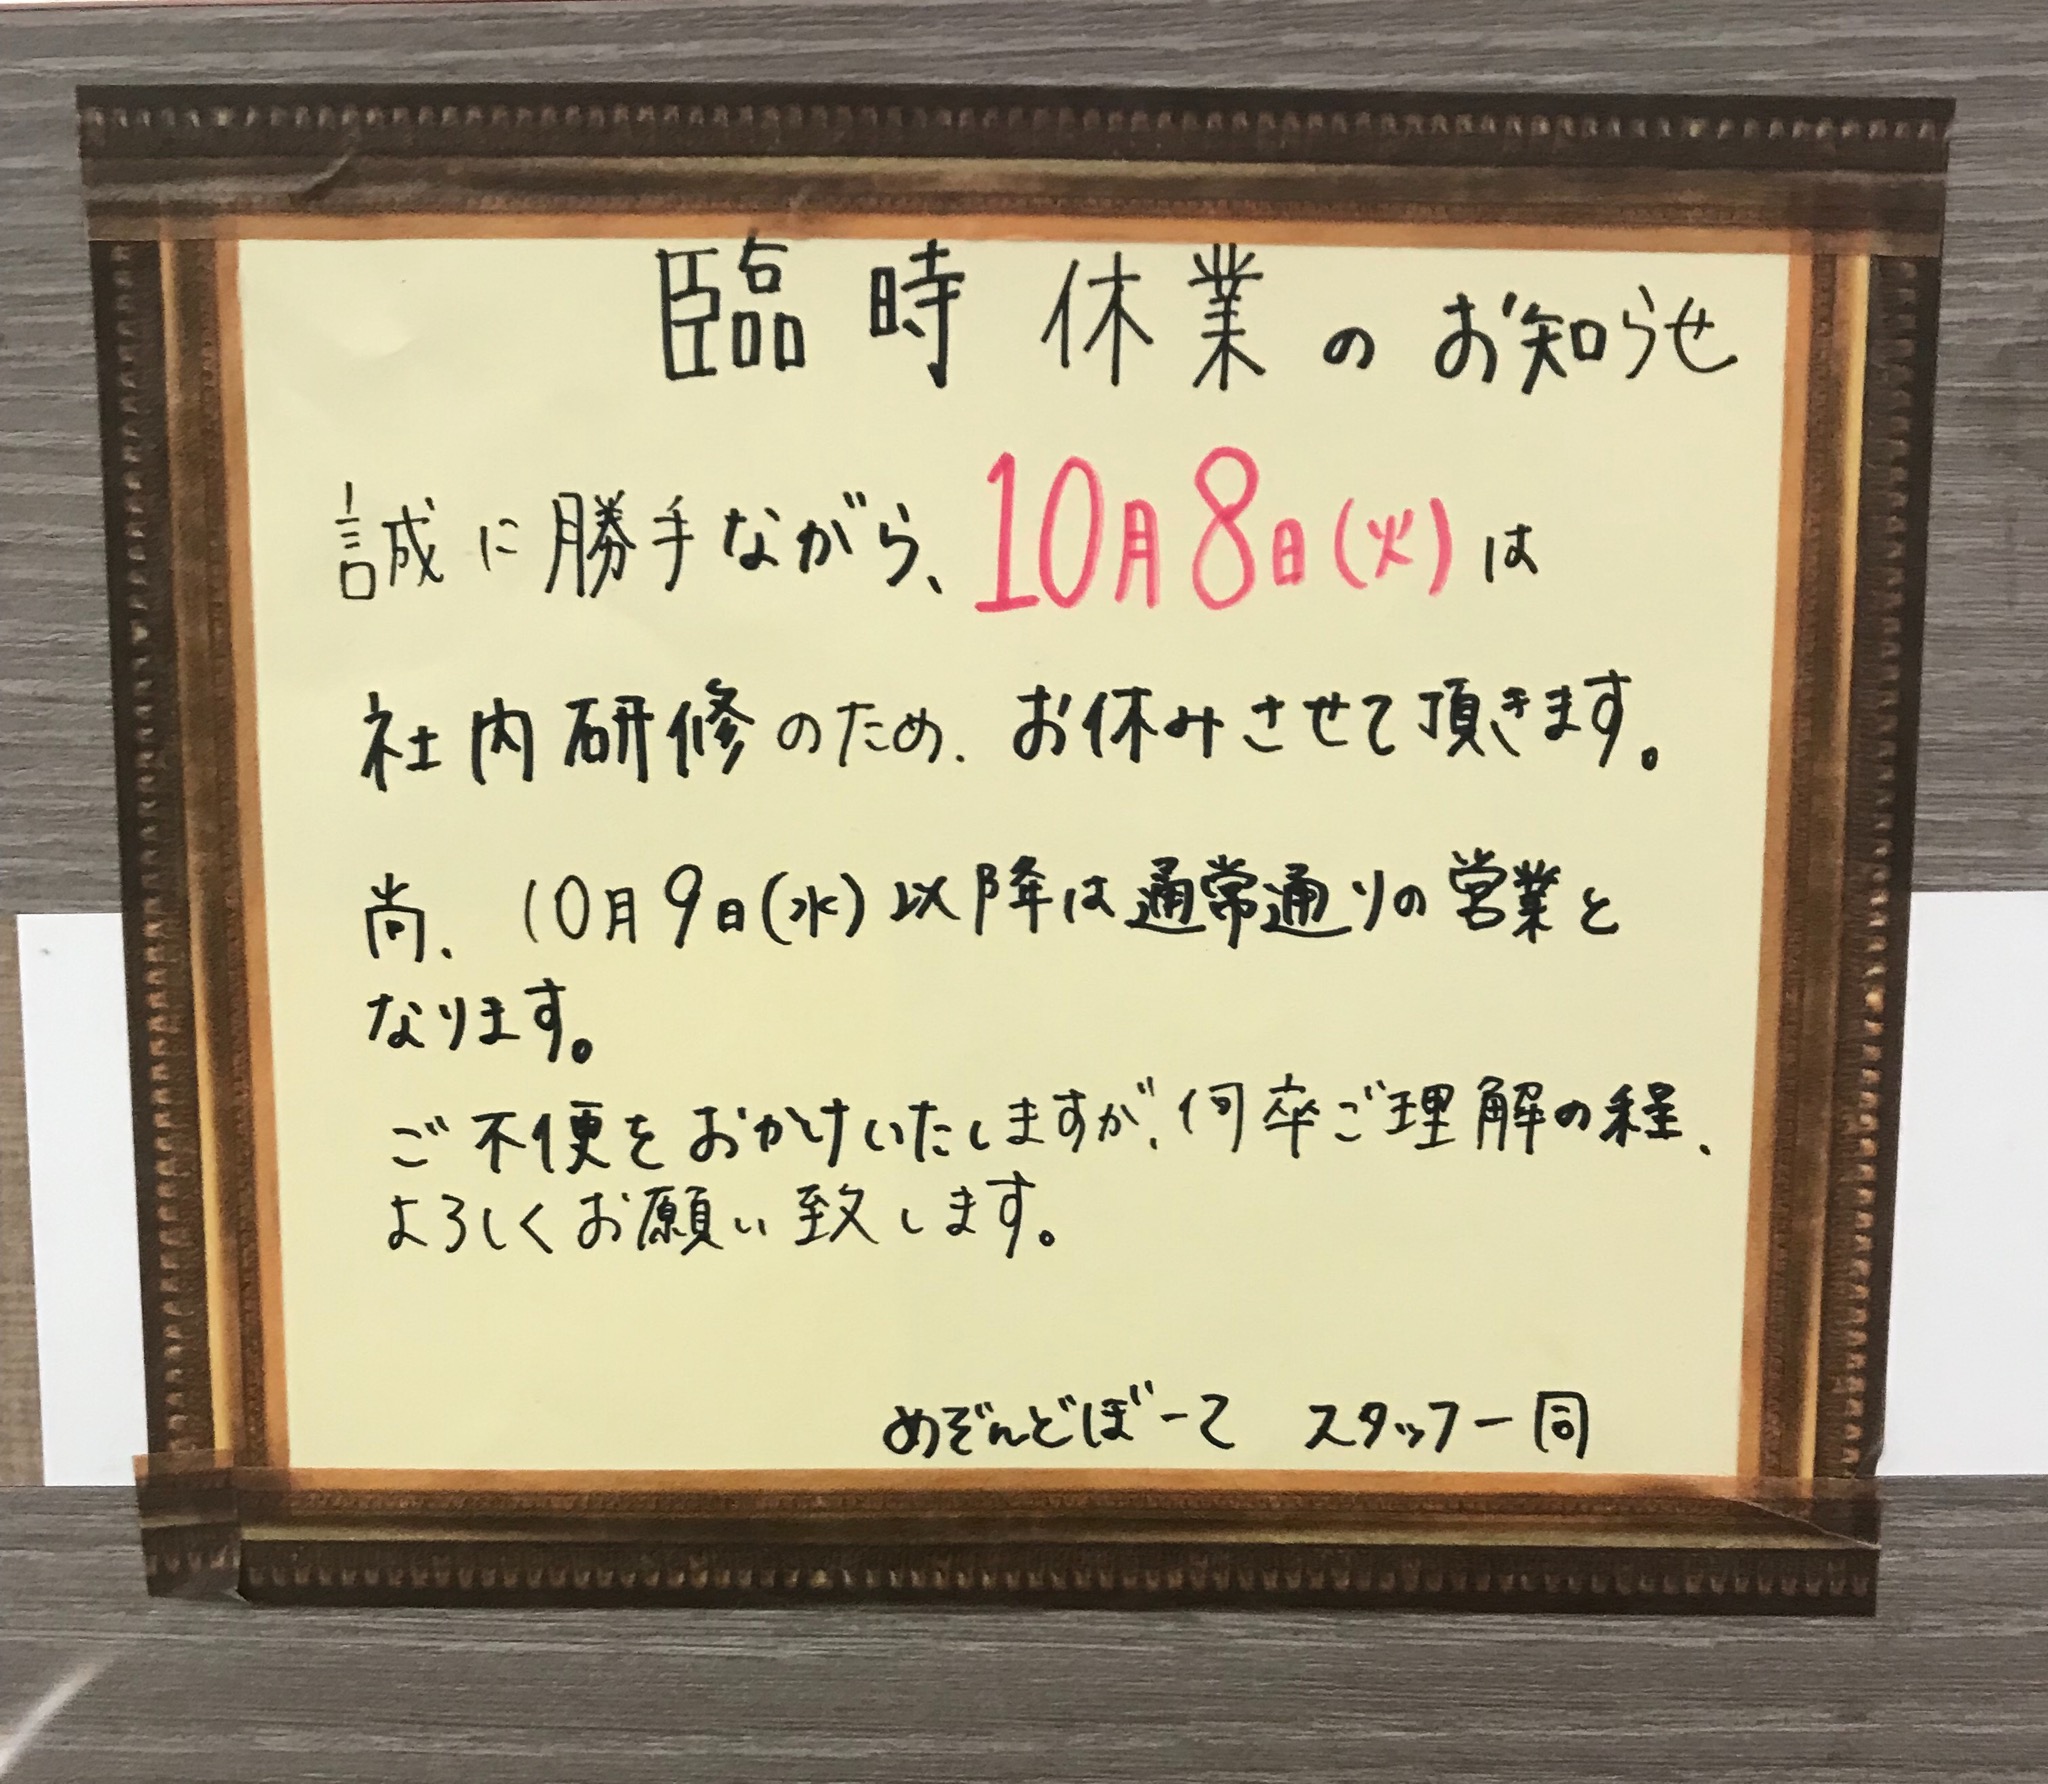 臨時休業のお知らせ
誠に勝手ながら、10月8日(火)は
社内研修のため、お休みさせて頂きます。
尚、10月9日(水)以降は通常通りの営業と
なります。
ご不便をおかけいたしますが、何卒ご理解の程、
よろしくお願い致します。
めぞんどぼーて スタッフ一同